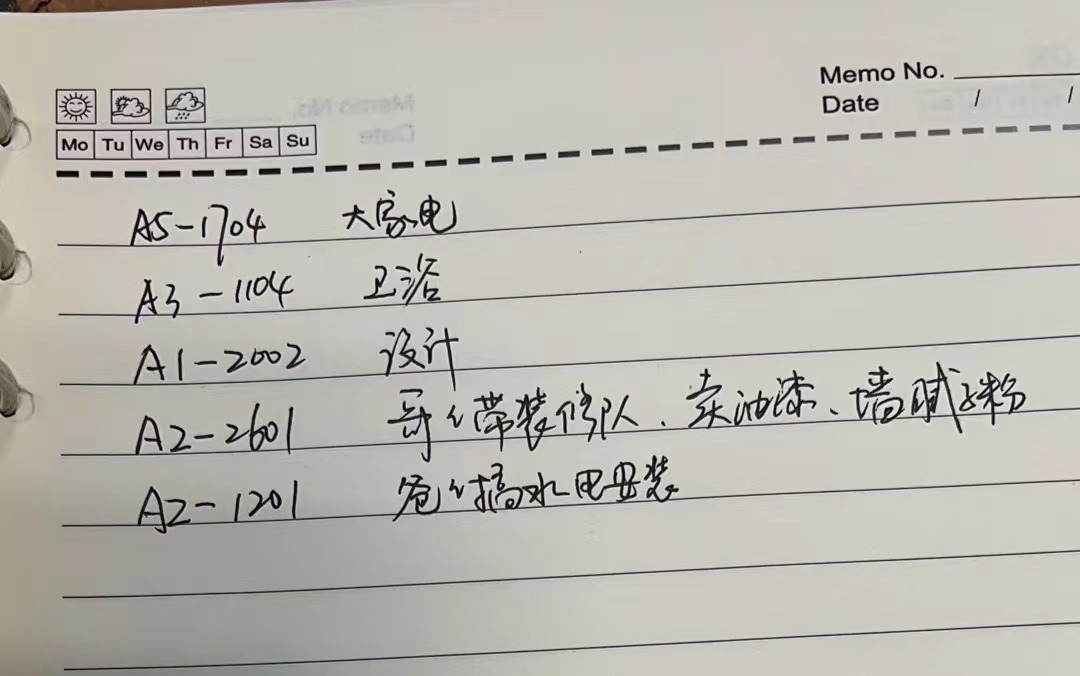 Memo No.
Date / /
Mo Tu We Th Fr Sa Su
A5-1704 大家电
A3-1104 卫浴
A1-2002 设计
A2-2601 哥哥带装修队、卖油漆、墙腻子粉
A2-1201 爸爸搞水电安装